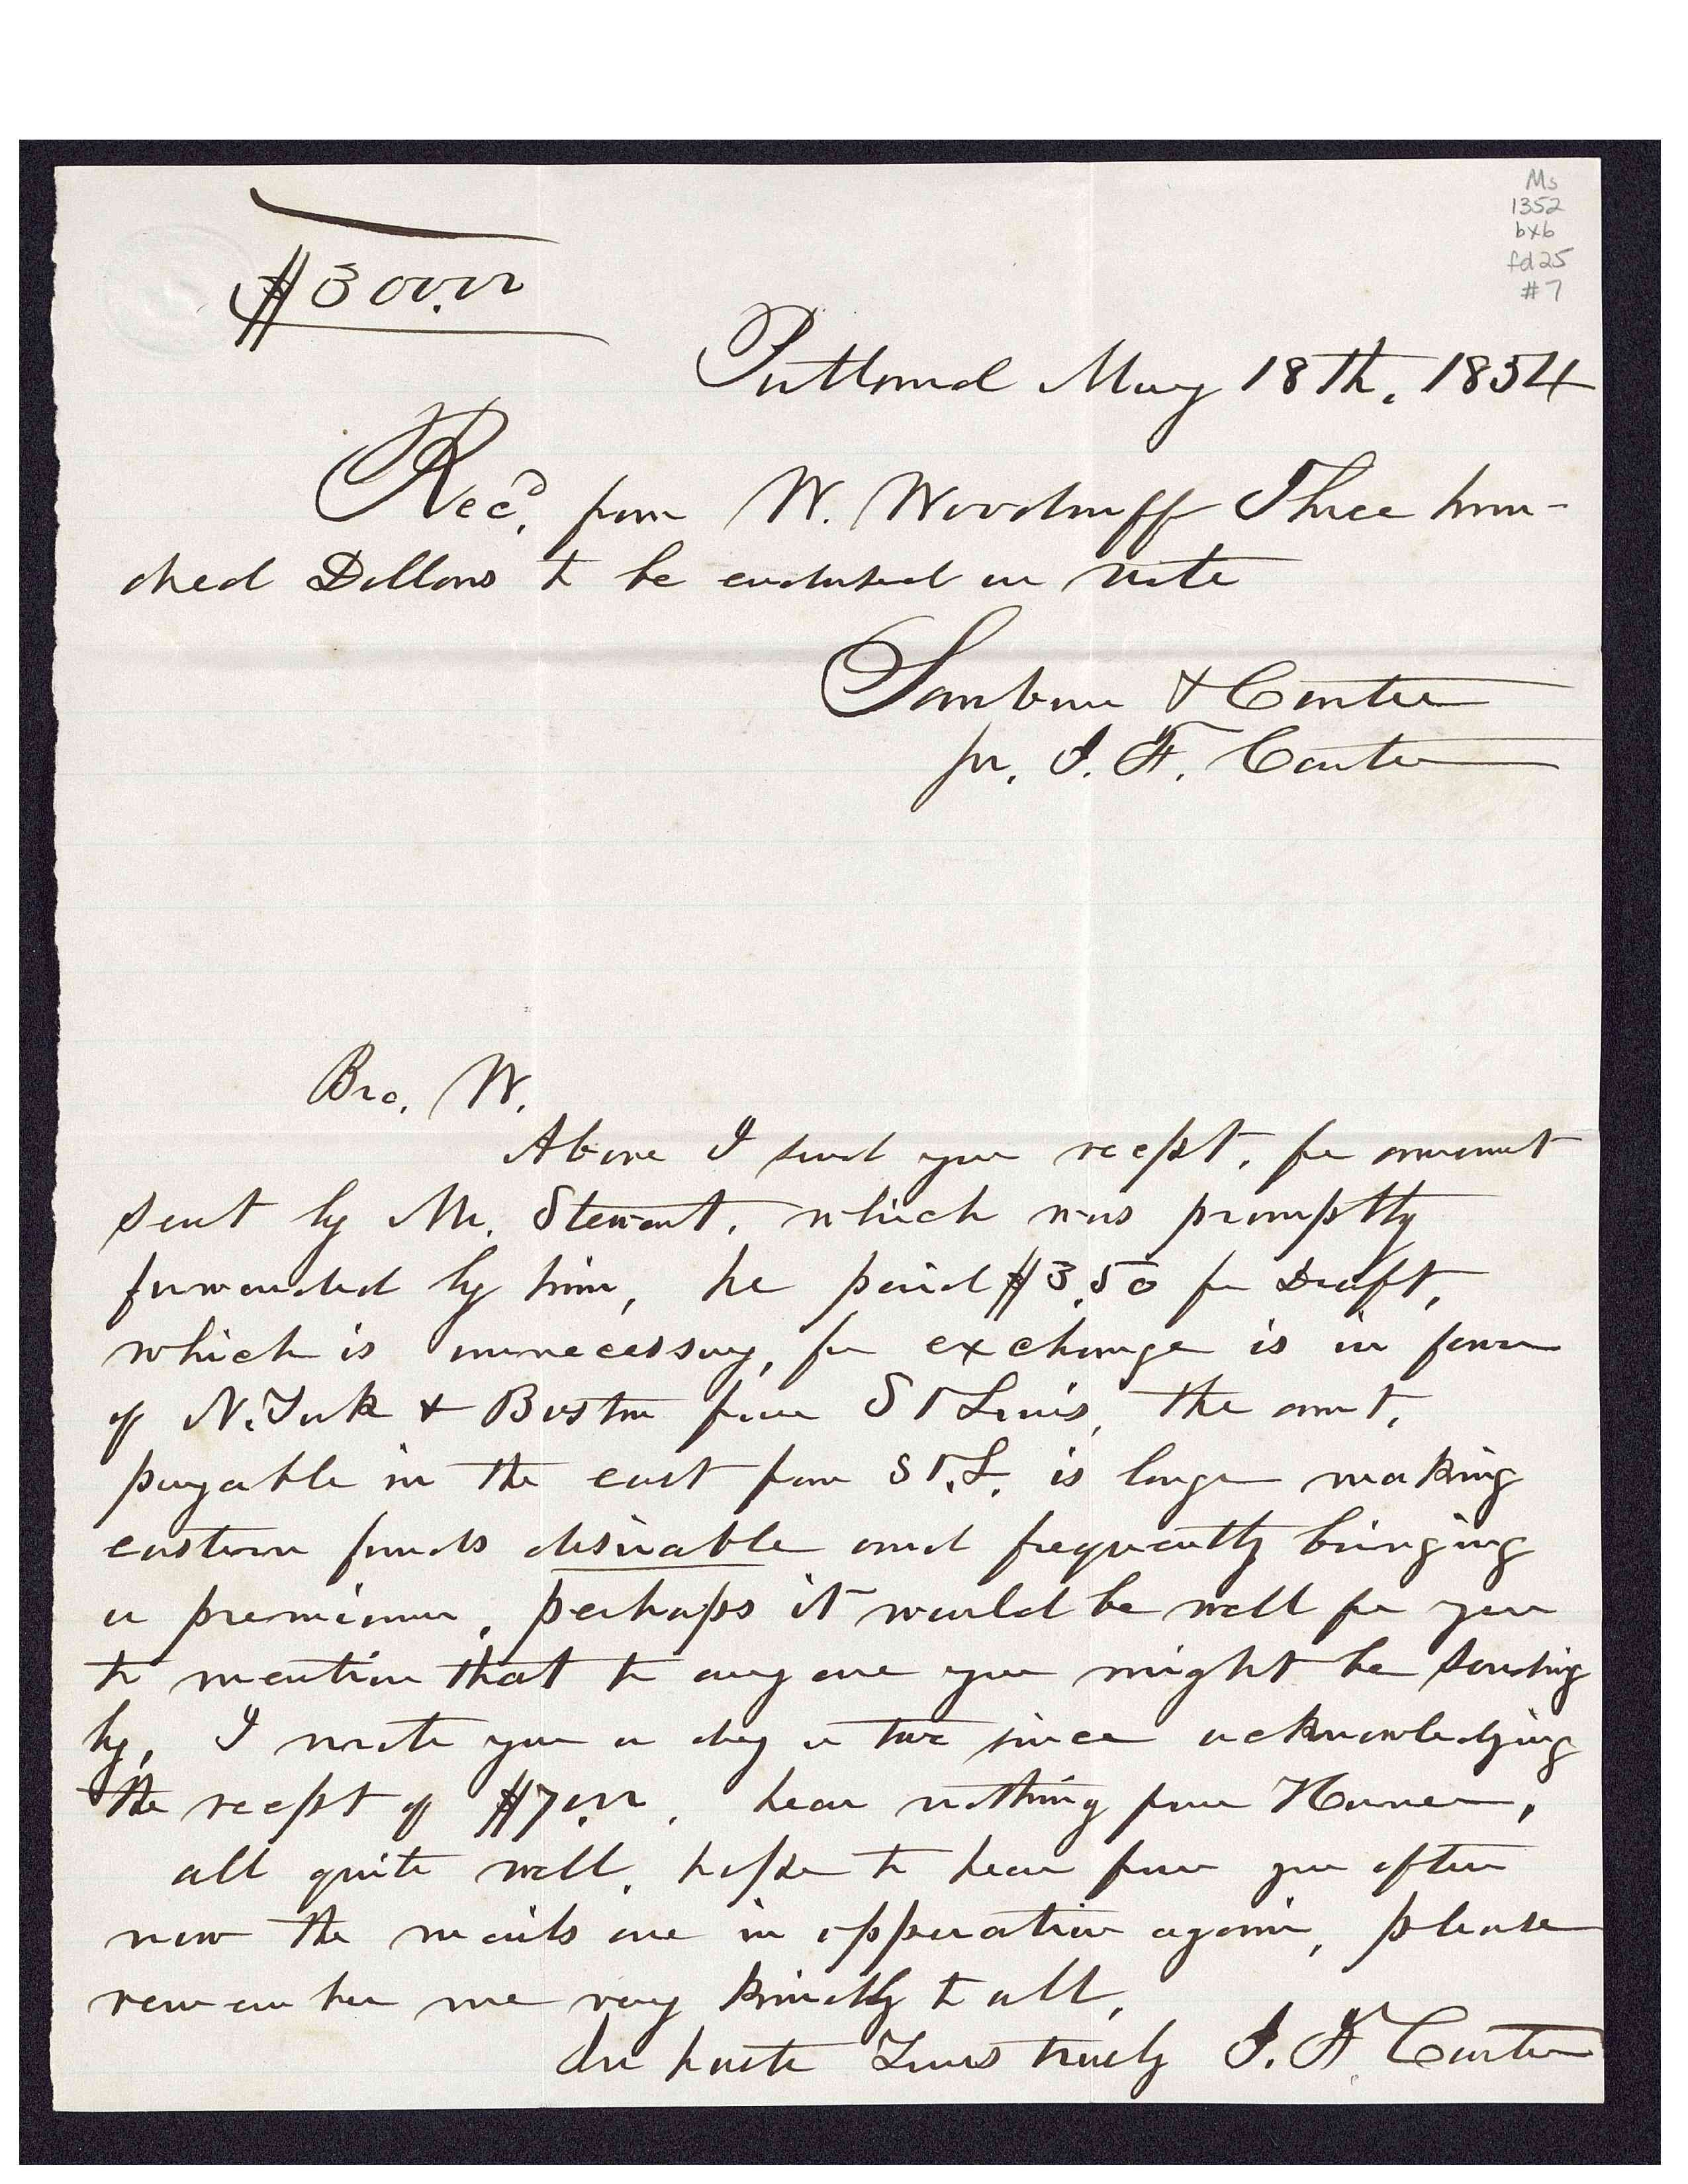 Ms
1352
bx6
fd25
#7
$300.00
Portland May 18th. 1854
Recd. from W. Woodruff Three hun-
dred Dollars to be endorsed on note
& Carter
pr. I. F. Carter
Bro. W.
Above I send you recept. for amount
sent by Mr. Stewart. which was promptly
forwarded by him, he paid $3.50 for Draft,
which is unnecessary, for exchange is in favor
of N. York & Boston from St Louis, the amt.
payable in the east from St. L. is large making
eastern funds desirable and frequently bringing
a premium, perhaps it would be well for you
to mention that to any one you might be sending
by, I wrote you a day or two since acknowledging
the recept of hear nothing from
all quite well. hope to hear from you often
now the mails are in opperation again, please
remember me very kindly to all,
In haste Yours truly I. F. Carter